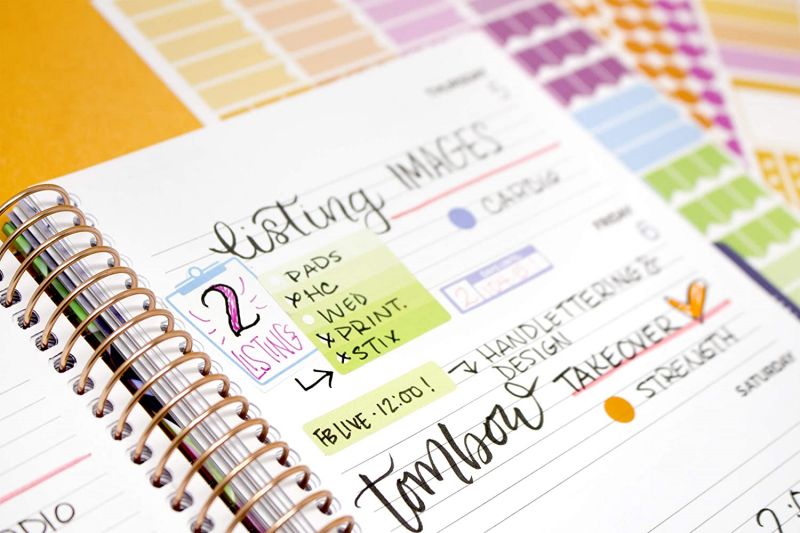 THURSDAY
5
listing IMAGES
CARDIO
2
LISTING
PADS
x HC
WED
x PRINT.
x STIX
FRIDAY
6
FB LIVE · 12:00!
HANDLETTERING &
DESIGN
tombow TAKEOVER
STRENGTH
SATURDAY